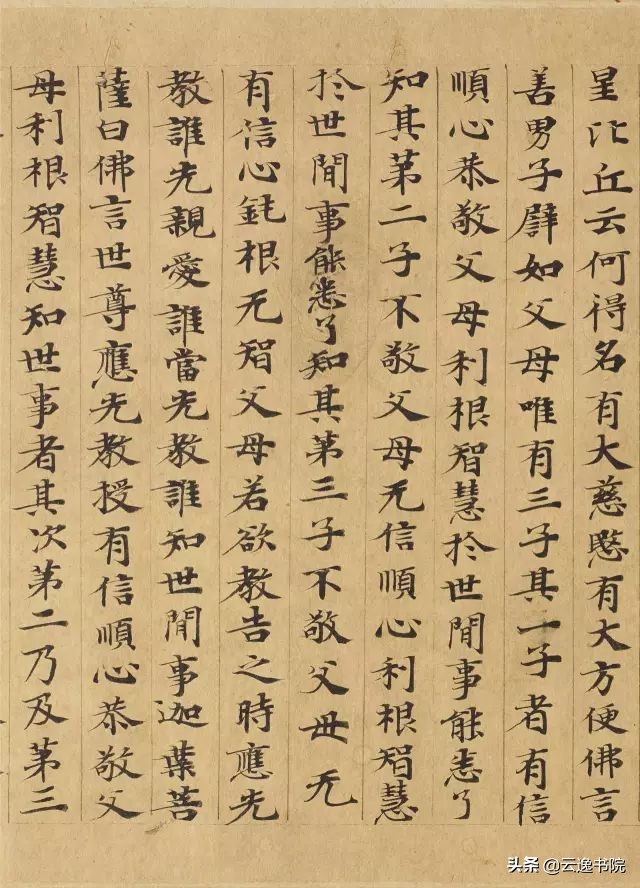 星比丘云何得名有大慈愍有大方便佛言
善男子譬如父母唯有三子其一子者有信
順心恭敬父母利根智慧扵世間事能悉了
知其第二子不敬父母无信順心利根智慧
扵世間事能悉了知其第三子不敬父毋无
有信心鈍根无智父母若欲教告之時應先
教誰先親愛誰當先教誰知世間事迦葉菩
薩白佛言世尊應先教授有信順心恭敬父
母利根智慧知世事者其次第二乃及第三
头条 @云逸书院